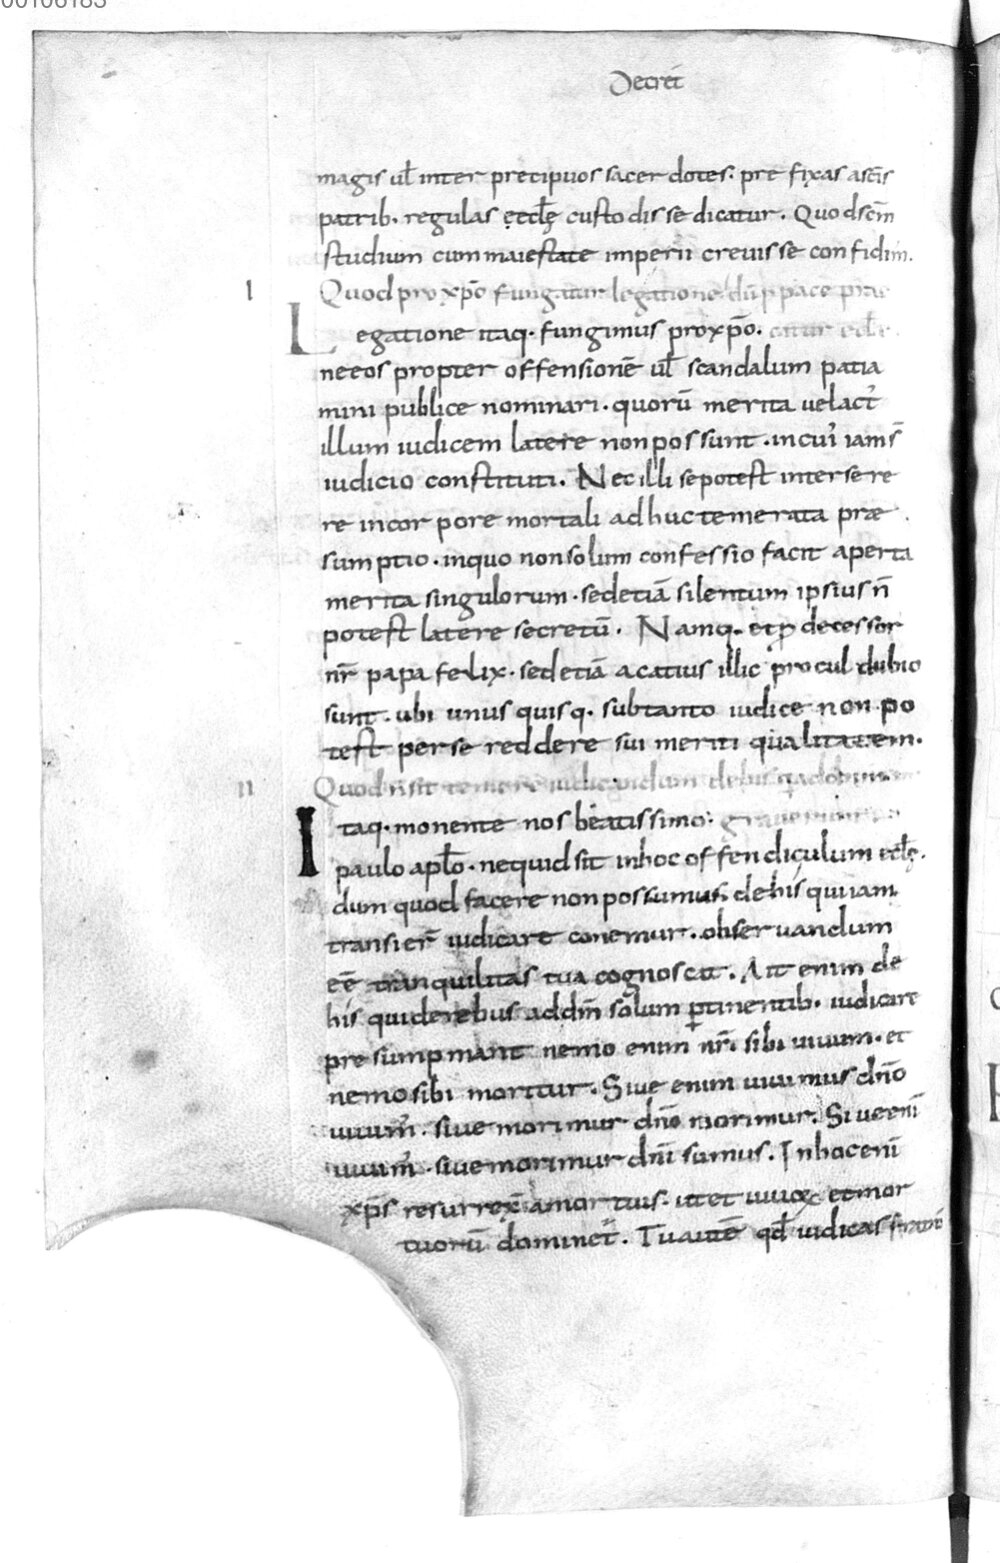 Decret̄
magis ul̄ inter precipuos sacerdotes. prefixas a sc̄is
patrib. regulas ęcclę custodisse dicatur. Quod sc̄m
studium cum maiestate imperii creuisse confidim̄.
I Quod pro xp̄o fungatur legatione dū p pace prae
Legatione itaq. fungimus pro xp̄o.
ne eos propter offensionē ul̄ scandalum patia
mini publice nominari. quorū merita uel act̄
illum iudicem latere non possunt. in cui' iam s̄
iudicio constituti. Nec illi se potest inserere
re in corpore mortali adhuc temerata præ
sumptio. in quo non solum confessio facit aperta
merita singulorum. sed etiā silentium ipsius n̄
potest latere secretū. Namq. et p̄decessor
nr̄ papa felix. sed etiā acatius illic procul dubio
sunt. ubi unus quisq. sub tanto iudice non po
test perse reddere sui meriti qualitatem.
II Quod n̄ sit temere iudicandum de his
Itaq. monente nos beatissimo
paulo apl̄o. nequid sit in hoc offendiculum ecclę.
dum quod facere non possumus. de his qui iam
transier̄ iudicare conemur. obseruandum
eē tranquilitas tua cognoscat. Ait enim de
his qui de rebus ad dm̄ solum p̄tinentib. iudicare
presumpmant nemo enim nr̄. sibi uiuum. et
nemo sibi moritur. Siue enim uiuimus dn̄o
uiuim̄. siue morimur dn̄o morimur. Siue eni
uiuim̄. siue morimur dn̄i sumus. In hoc eni
xp̄s resurrex̄ a mortuis. ut et uiuoꝝ et mor
tuorū dominet̄. Tu autē qd̄ iudicas fratrē